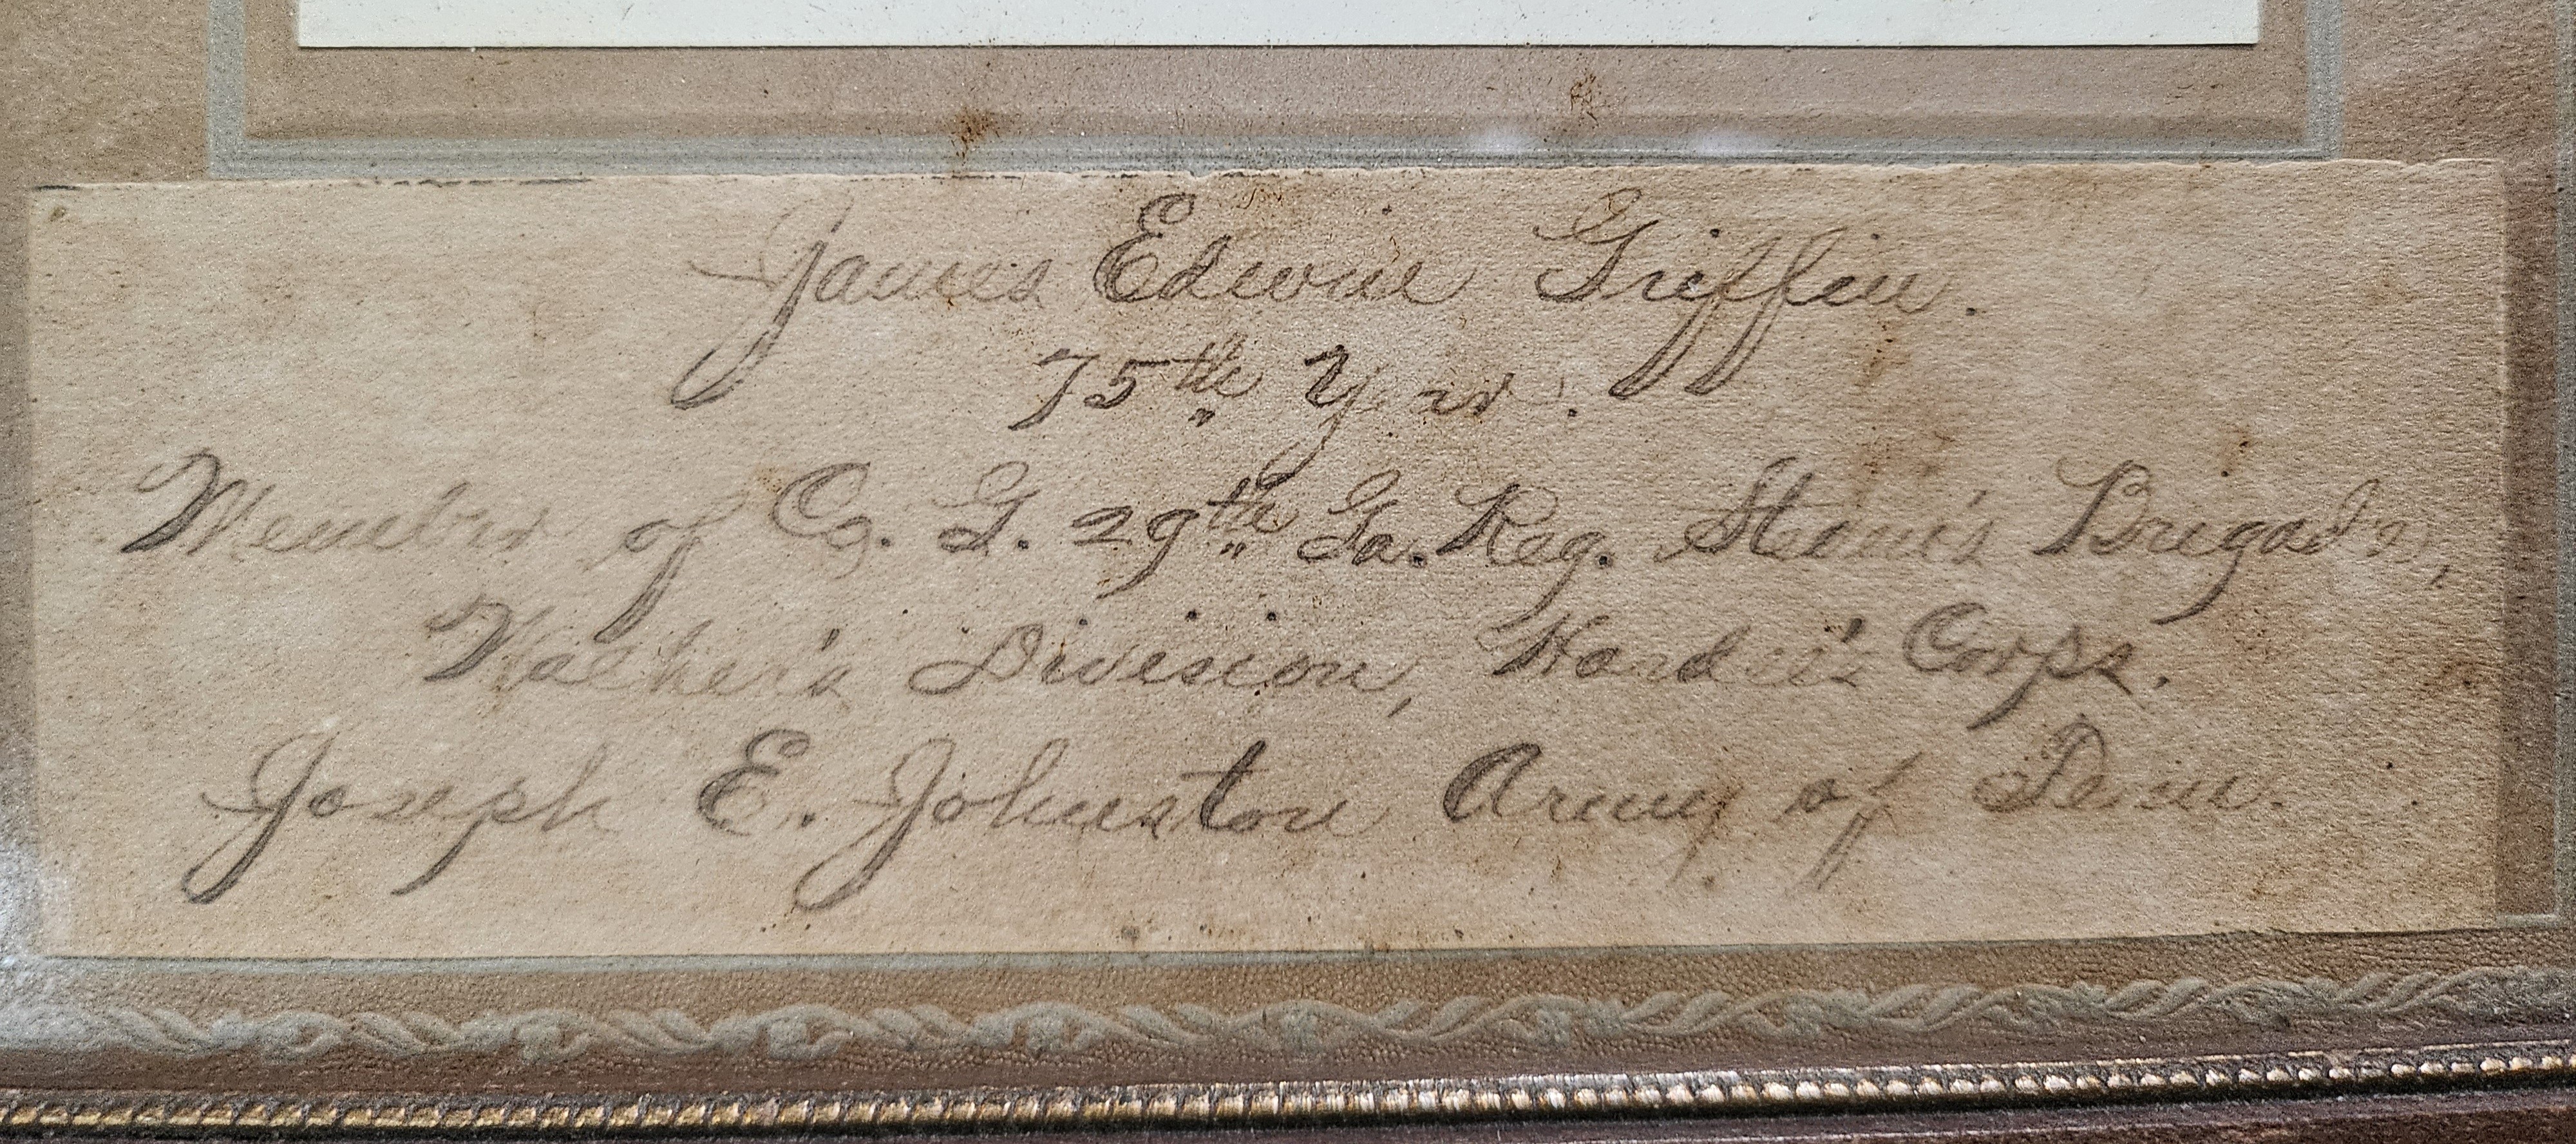 James Edwin Griffin.
75th Year.
Member of Co. G. 29th Ga. Reg. Steven's Brigade,
Walker's Division, Hardee's Corps.
Joseph E. Johnston Army of Tenn.